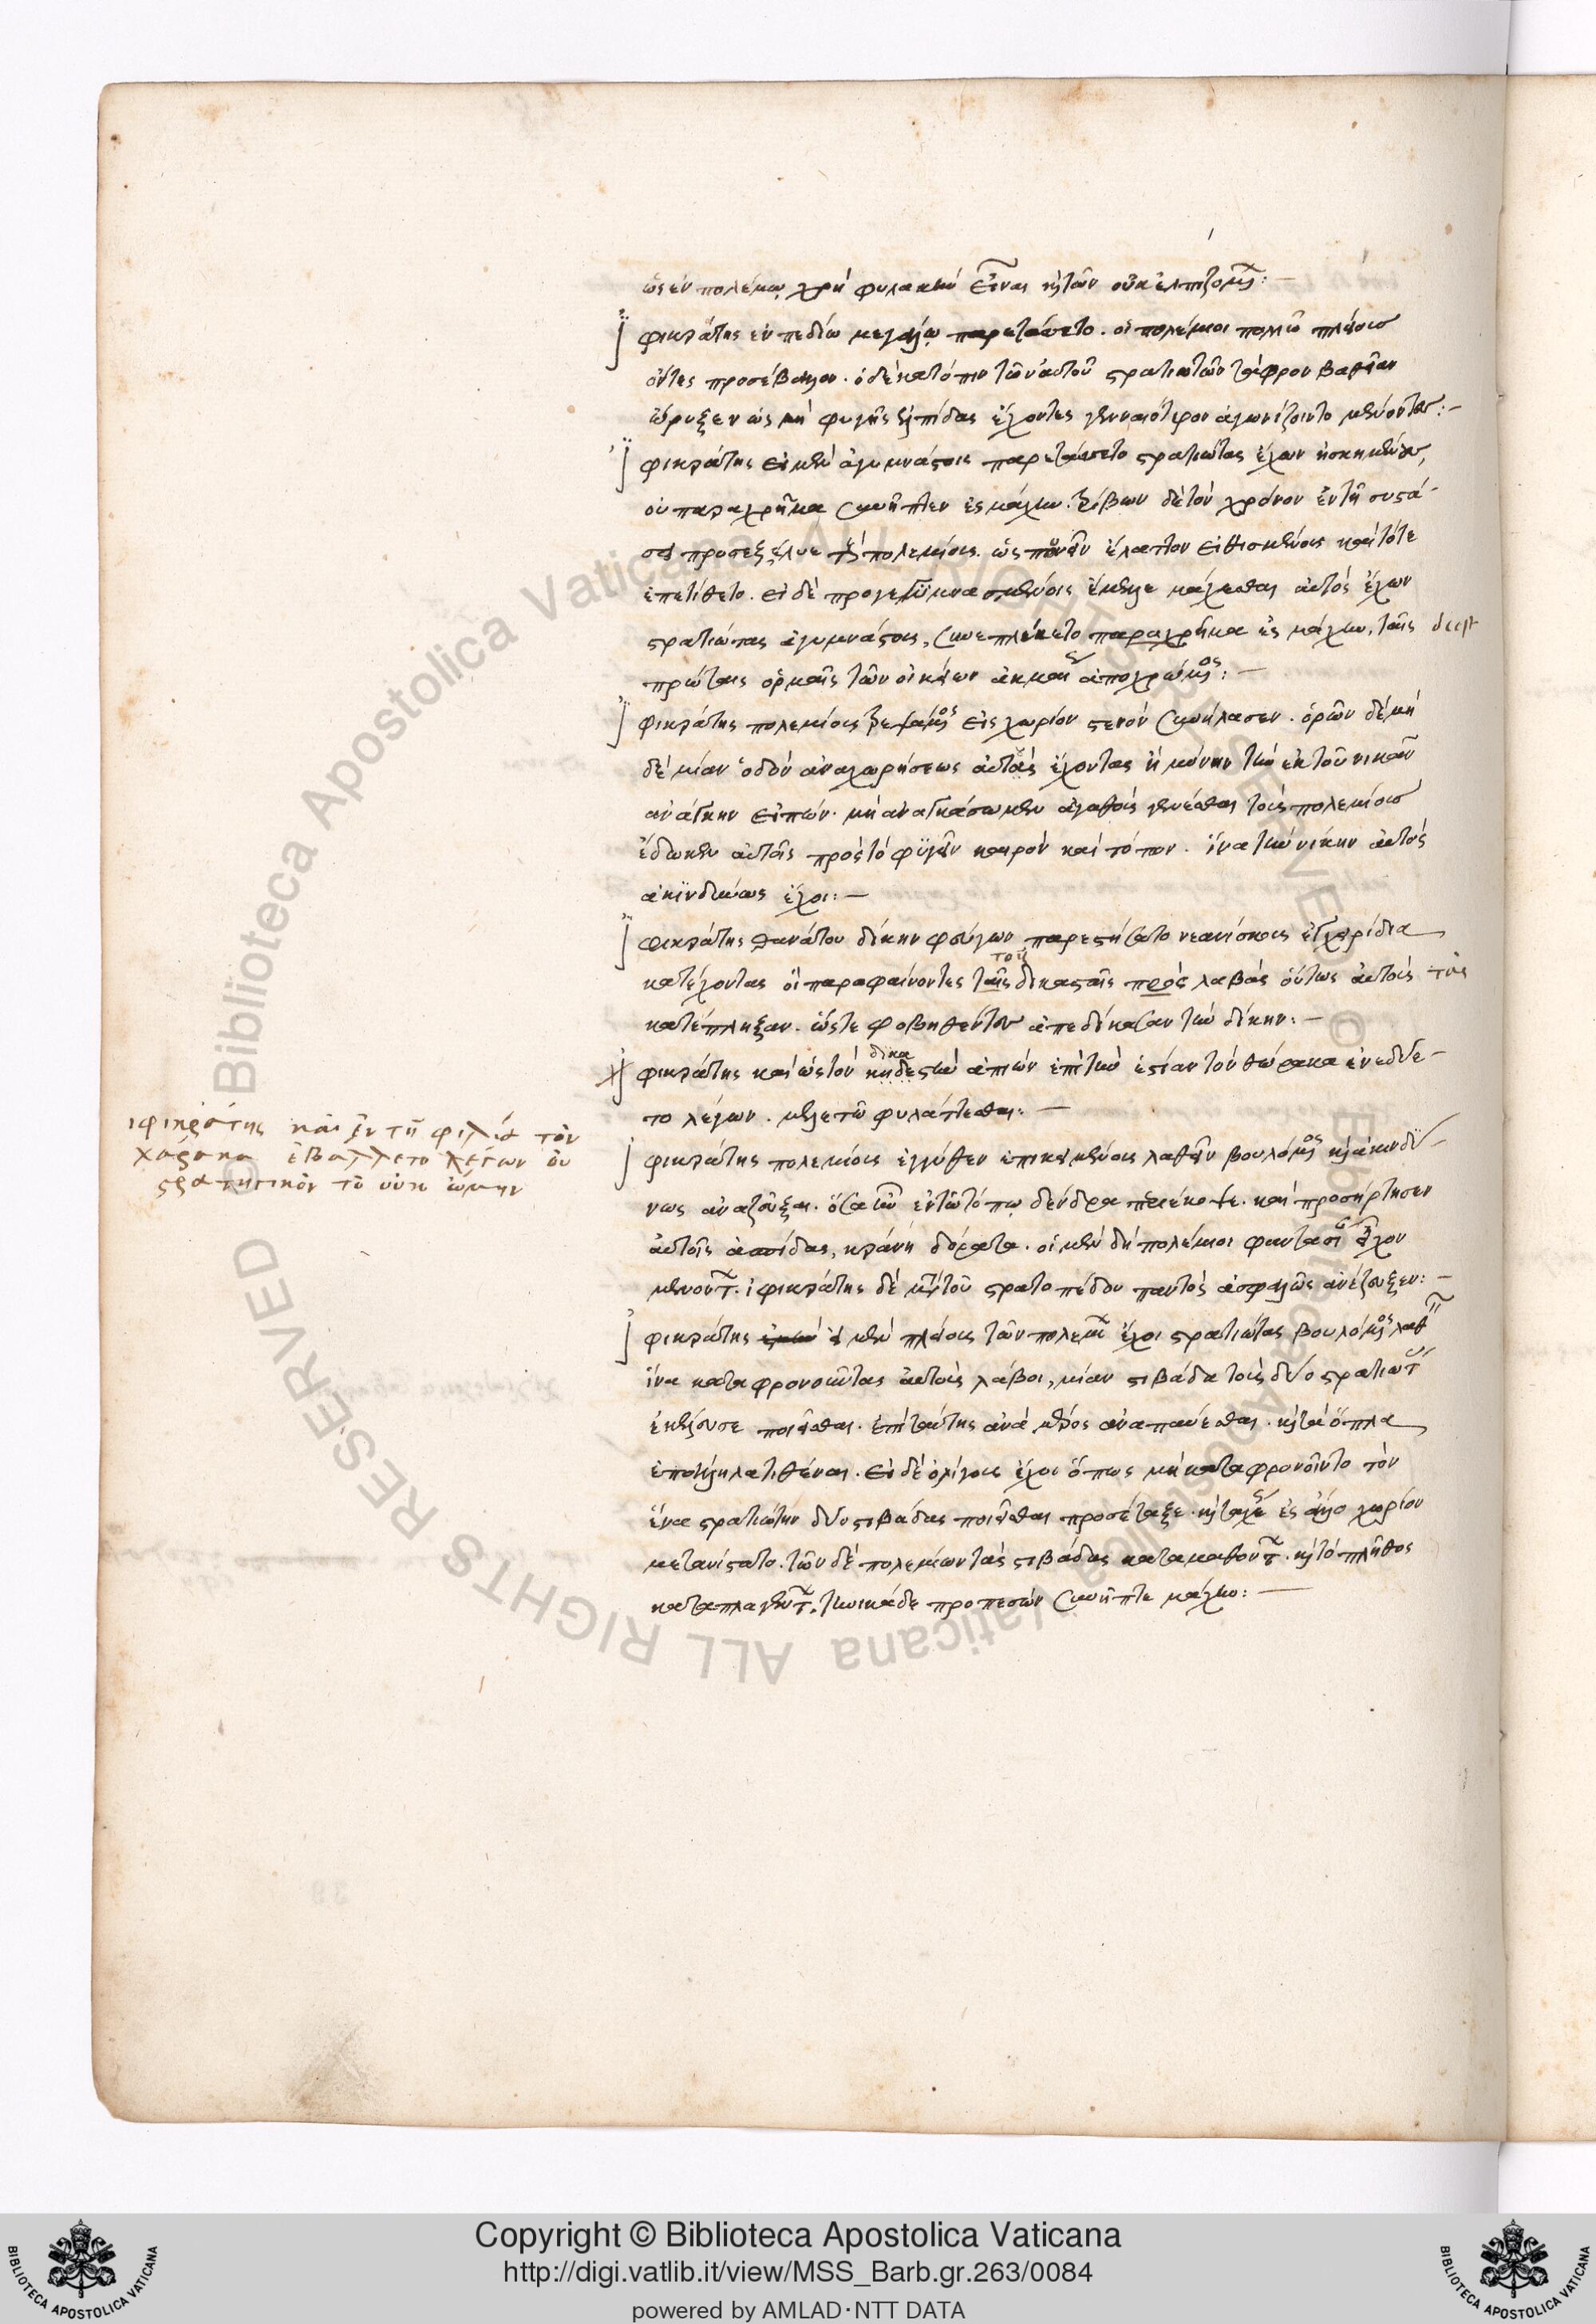 ὡς ἐν πολέμῳ χρὴ φυλακὴν εἶναι καὶ τῶν οὐκ ἐλπιζομένων:—
Ἰφικράτης ἐν πεδίω μεγάλῳ παρετάσσετο. οἱ πολέμιοι πολλῶ πλείους
ὄντες προσέβαλλον. ὁ δὲ κατόπιν τῶν αὐτοῦ στρατιωτῶν τάφρον βαθεῖαν
ὤρυξεν ὡς μὴ φυγῆς ἐλπίδας ἔχοντες γενναιότερον ἀγωνίζοιντο μένοντες:—
Ἰφικράτης εἰ μὲν ἀγυμνάστοις παρετάσσετο στρατιώτας ἔχων ἠσκημένους,
οὐ παραχρῆμα συνῆπτεν ἐς μάχην. τρίβων δὲ τὸν χρόνον ἐν τῆ συστά-
σει προσεξέλυε τοὺς πολεμίους. ὡς πονεῖν ἔλαττον εἰθισμένους καὶ τότε
ἐπετίθετο. εἰ δὲ προγεγυμνασμένοις ἔμελλε μάχεσθαι αὐτὸς ἔχων
στρατιώτας ἀγυμνάστους, συνεπλέκετο παραχρῆμα ἐς μάχην, ταῖς deest
πρώταις ὁρμαῖς τῶν οἰκείων ἀκμαῖς ἀποχρώμενος:—
Ἰφικράτης πολεμίους τρεψάμενος εἰς χωρίον στενὸν συνήλασεν. ὁρῶν δὲ μη
δὲ μίαν ὁδὸν ἀναχωρήσεως αὐτοὺς ἔχοντας ἢ μόνην τὴν ἐκ τοῦ νικᾶν
ἀνάγκην εἰπών. μὴ ἀναγκάσωμεν ἀγαθοὺς γενέσθαι τοὺς πολεμίους
ἔδωκεν αὐτοῖς πρὸς τὸ φυγεῖν καιρὸν καὶ τόπον. ἵνα τὴν νίκην αὐτὸς
ἀκινδύνως ἔχοι:—
Ἰφικράτης θανάτου δίκην φεύγων παρεστήσατο νεανίσκους ἐγχειρίδια
κατέχοντας οἳ παραφαίνοντες τοῖς δικασταῖς πρὸς λαβὰς οὕτως αὐτοὺς τὰς
κατέπληξαν. ὥστε φοβηθέντες ἀπεδίκασαν τὴν δίκην:—
Ἰφικράτης καὶ ὡς τὸν κηδεστὴν ἀπιὼν ἐπὶ τὴν ἑστίαν τὸν θώρακα ἐνεδύε-
δικα
το λέγων. μελετῶ φυλάττεσθαι:—
Ἰφικράτης πολεμίοις ἐγγύθεν ἐπικειμένοις λαθεῖν βουλόμενος καὶ ἀκινδύ-
νως ἀναζεῦξαι. ὅσα ἦν ἐν τῶ τόπῳ δένδρα περιέκοψε. καὶ προσήρτησεν
αὐτοῖς ἀσπίδας, κράνη δόρατα. οἱ μὲν δὴ πολέμιοι φαντασίαν εἶχον
μενόντων. ἰφικράτης δὲ μετὰ τοῦ στρατοπέδου παντὸς ἀσφαλῶς ἀνέζευξεν:—
Ἰφικράτης εἰ μὲν πλείους τῶν πολεμίων ἔχοι στρατιώτας βουλόμενος λαθεῖν
ἵνα καταφρονοῦντας αὐτοὺς λάβοι, μίαν στιβάδα τοὺς δύο στρατιώτας
ἐκέλευσε ποιεῖσθαι. ἐπὶ ταύτης ἀνὰ μέρος ἀναπαύεσθαι. καὶ τὰ ὅπλα
ἐπάλληλα τιθέναι. εἰ δὲ ὀλίγους ἔχοι ὅπως μὴ καταφρονοῖντο τὸν
ἕνα στρατιώτην δύο στιβάδας ποιεῖσθαι προσέταξε. καὶ ταχέως ἐς ἄλλο χωρίον
μετανίστατο. τῶν δὲ πολεμίων τὰς στιβάδας καταμαθόντων. καὶ τὸ πλῆθος
καταπλαγέντων. τηνικάδε προπεσὼν συνῆπτε μάχην:—
ἰφικράτης καὶ ἐν τῆ φιλίᾳ τὸν
χάρακα ἐβάλλετο λέγων οὐ
στρατηγικὸν τὸ οὐκ ᾤμην
Copyright © Biblioteca Apostolica Vaticana
http://digi.vatlib.it/view/MSS_Barb.gr.263/0084
powered by AMLAD·NTT DATA